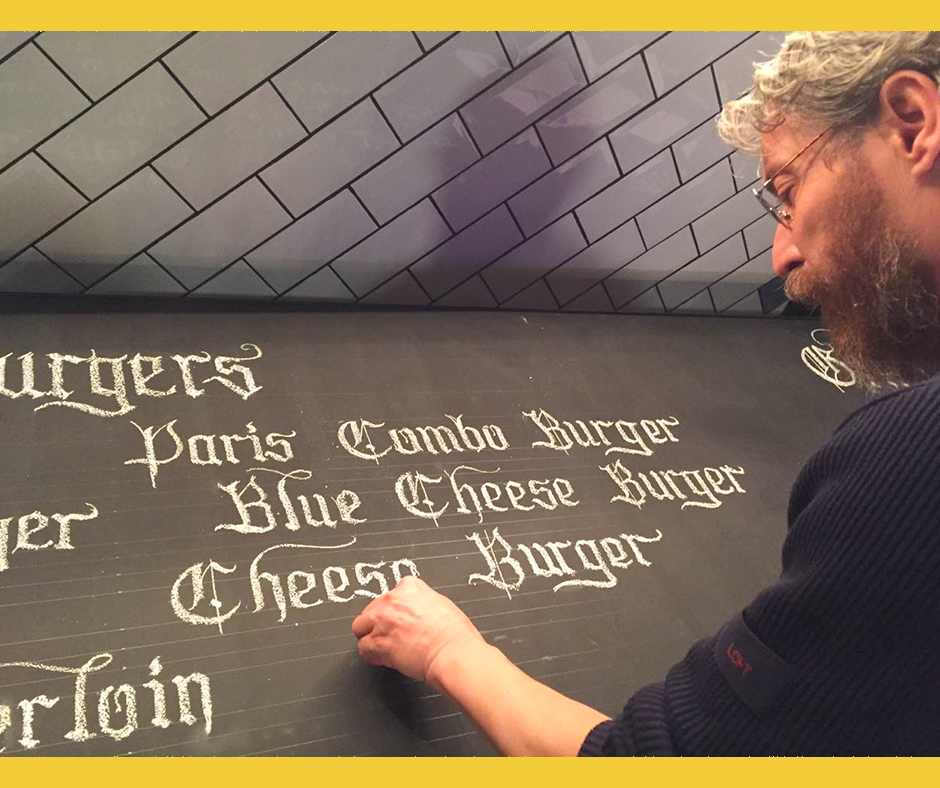 urgers
Paris Combo Burger
Blue Cheese Burger
ger
Cheese Burger
erloin
LOFT